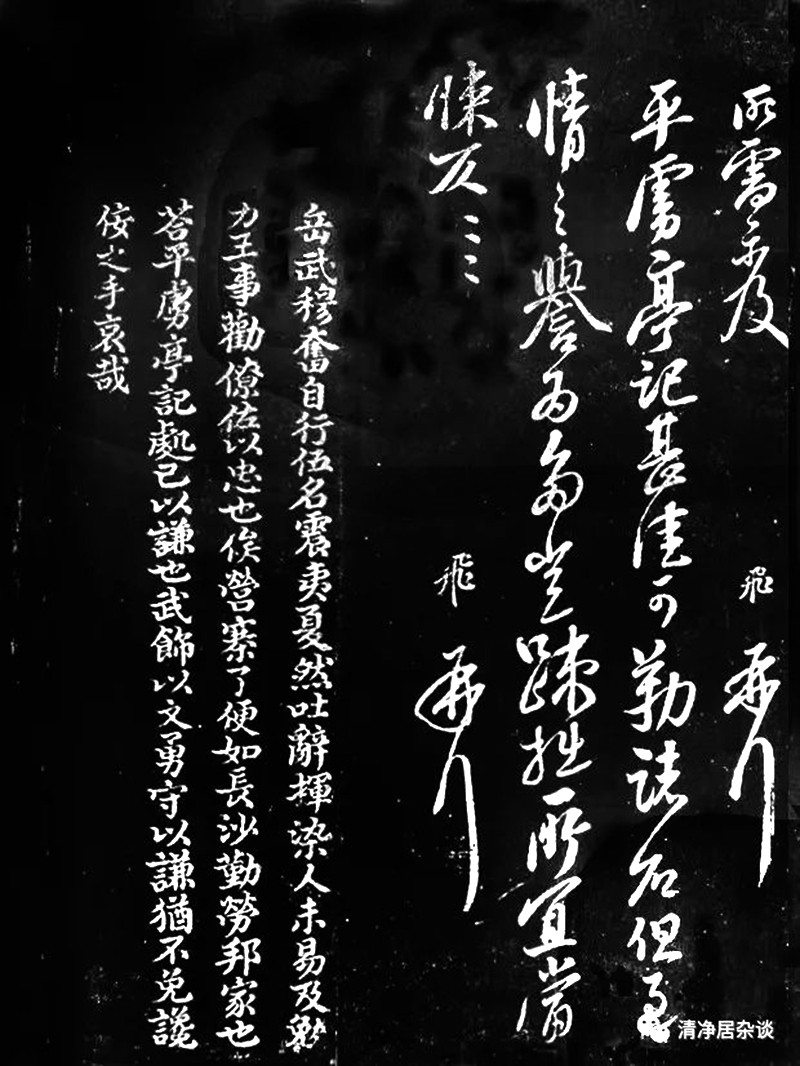 所需示及 飛再拜
平虜亭記甚佳可勒誌石但過
情之譽為多豈踈拙所宜當
悚仄〻〻 飛再拜
岳武穆奮自行伍名震夷夏然吐辭揮染人未易及勠
力王事勸僚佐以忠也俟營寨了便如長沙勤勞邦家也
荅平虜亭記處己以謙也武飾以文勇守以謙猶不免讒
佞之手哀哉
清净居杂谈